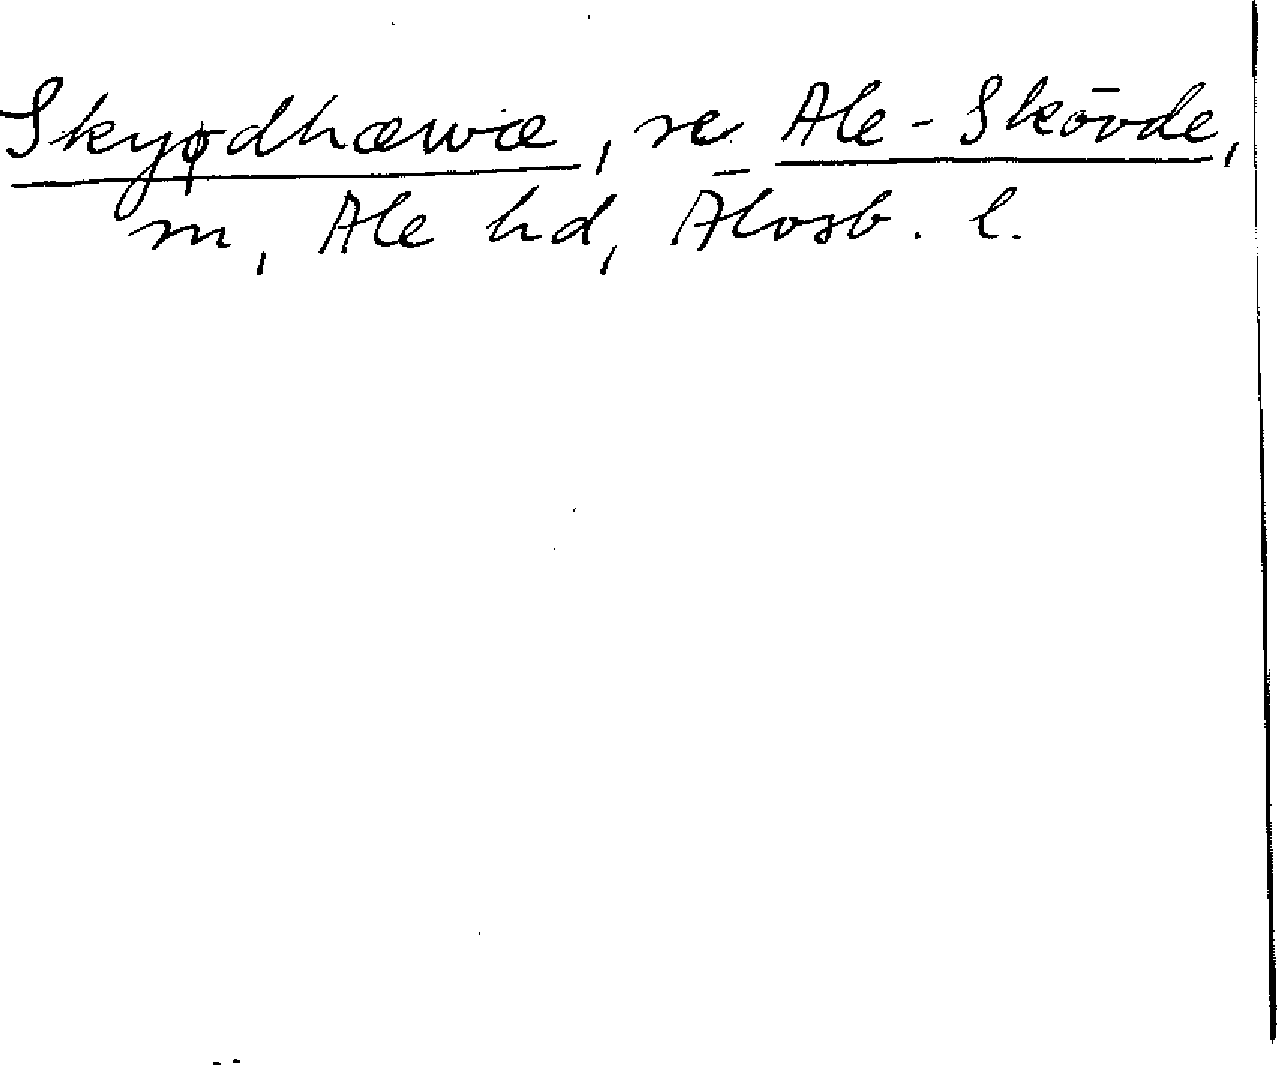 Skyødhæwæ, se Ale-Skövde,
sn, Ale hd, Älvsb. l.